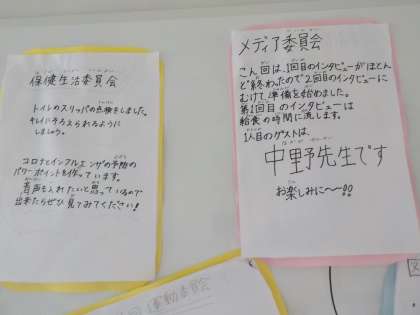 保健生活委員会
トイレのスリッパの点検をしました。
キレイにそろえられるように
しましょう。
コロナとインフルエンザの予防の
パワーポイントを作っています。
音声も入れたいと思っているので
出来たらぜひ見てみてください!
メディア委員会
こん回は、1回目のインタビューがほとん
ど終わったので2回目のインタビューに
むけて準備を始めました。
第1回目のインタビューは
給食の時間に流します。
1人目のゲストは、
中野先生です
お楽しみに〜!!
運動委員会